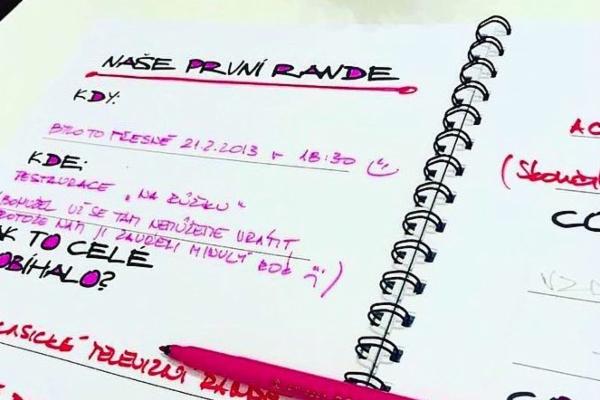 NAŠE PRVNÍ RANDE
KDY:
BYLO TO PŘESNĚ 21.2.2013 v 18:30
KDE:
RESTAURACE „NA RŮŽKU“
(BOHUŽEL UŽ SE TAM NEMŮŽEME VRÁTIT,
PROTOŽE NÁM JI ZAVŘELI MINULÝ ROK )
AK TO CELÉ
OBÍHALO?
ASICKÉ TELEVIZNÍ RANDE
AC
(Skonča
CO